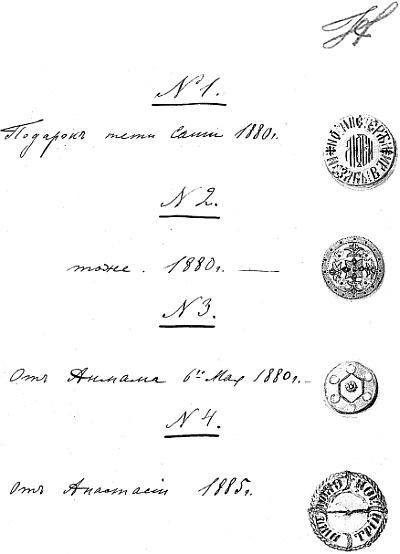 № 1.
Подарокъ тети Саши 1880 г.
№ 2.
тоже. 1880 г. —
№ 3.
Отъ Анмама 6го Мая 1880 г. —
№ 4.
Отъ Анастасіи 1885 г.